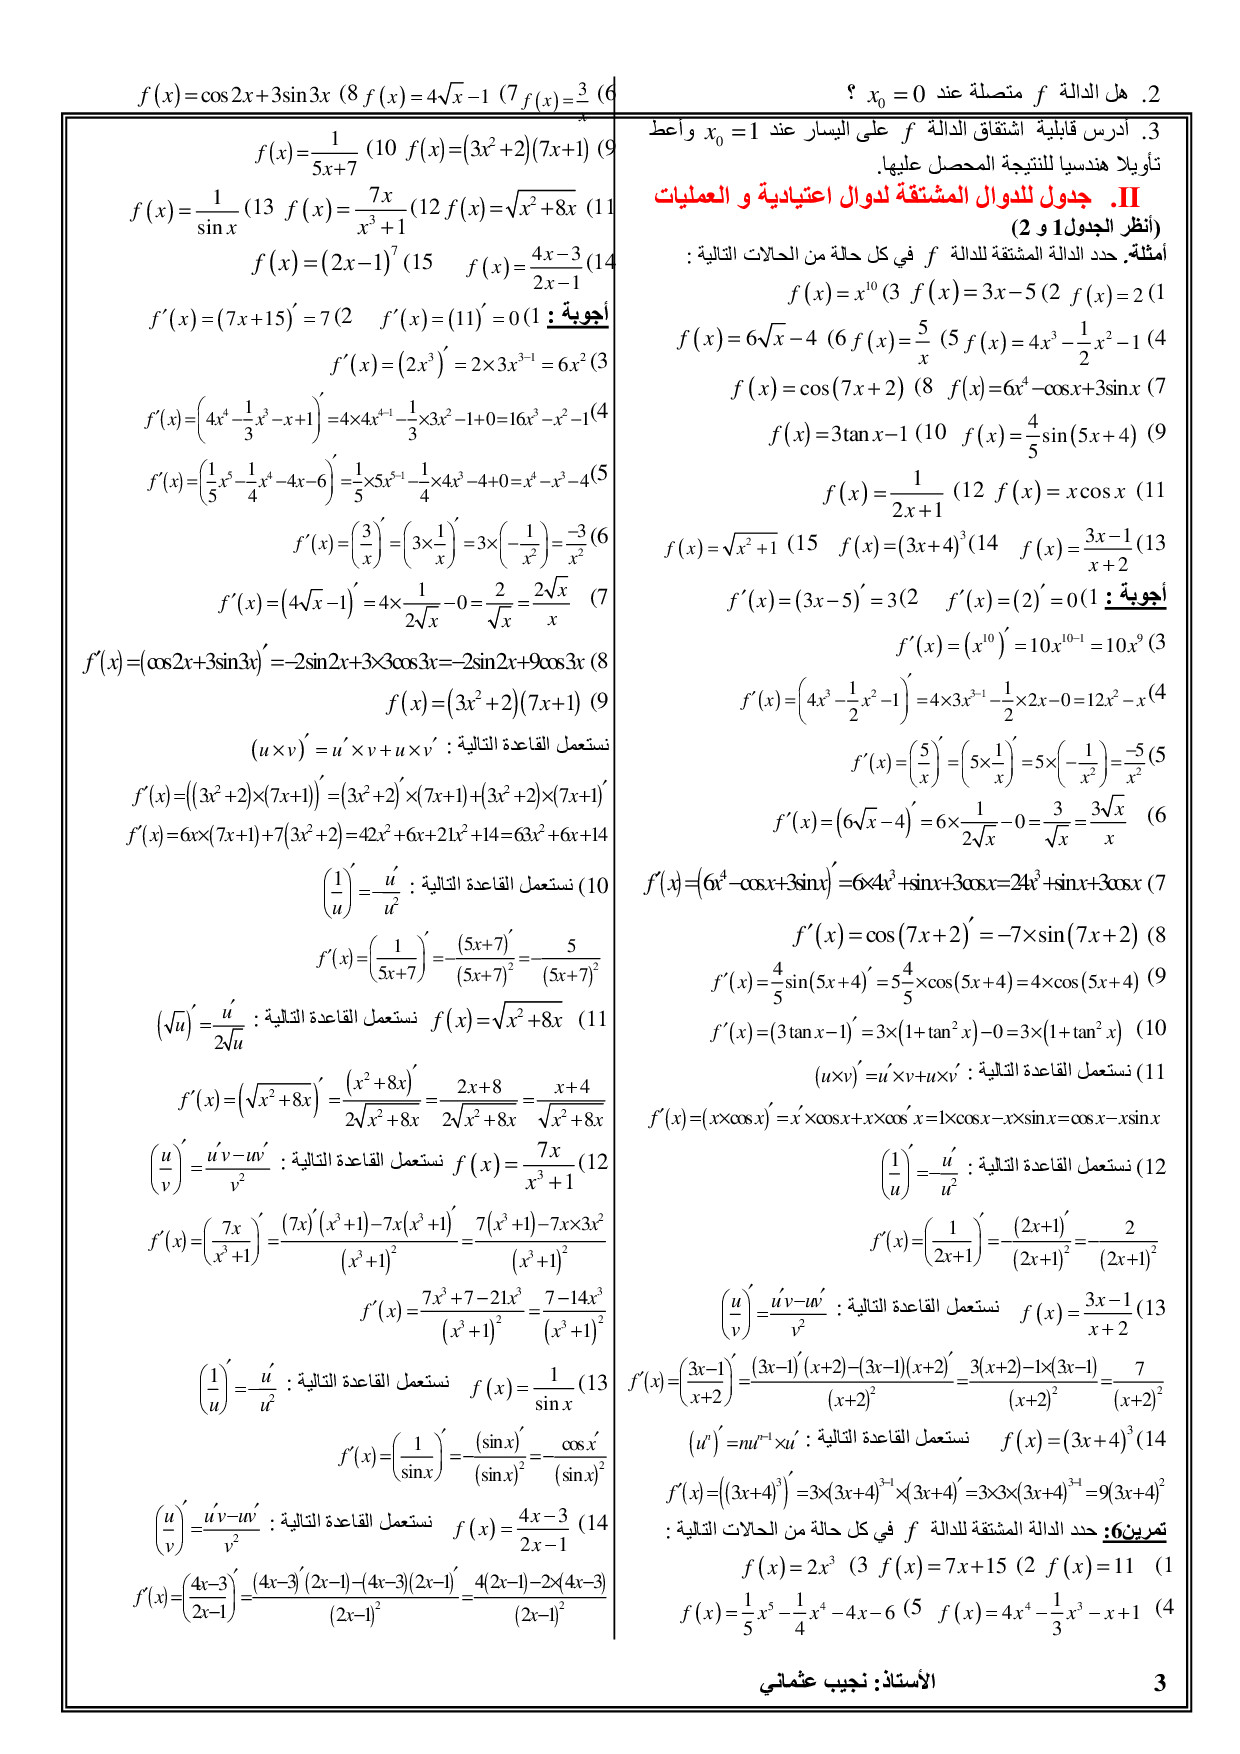 2. هل الدالة f متصلة عند x₀ = 0 ؟
3. أدرس قابلية اشتقاق الدالة f على اليسار عند x₀ = 1 وأعط
تأويلا هندسيا للنتيجة المحصل عليها.
II. جدول للدوال المشتقة لدوال اعتيادية و العمليات
(أنظر الجدول1 و 2)
أمثلة. حدد الدالة المشتقة للدالة f في كل حالة من الحالات التالية :
1) f(x) = 2 2) f(x) = 3x − 5 3) f(x) = x¹⁰
4) f(x) = 4x³ − 1/2 x² − 1 5) f(x) = 5/x 6) f(x) = 6√x − 4
7) f(x) = 6x⁴ − cos x + 3sin x 8) f(x) = cos(7x + 2)
9) f(x) = 4/5 sin(5x + 4) 10) f(x) = 3tan x − 1
11) f(x) = x cos x 12) f(x) = 1/(2x + 1)
13) f(x) = (3x − 1)/(x + 2) 14) f(x) = (3x + 4)³ 15) f(x) = √(x² + 1)
أجوبة : 1) f′(x) = (2)′ = 0 2) f′(x) = (3x − 5)′ = 3
3) f′(x) = (x¹⁰)′ = 10x¹⁰⁻¹ = 10x⁹
4) f′(x) = (4x³ − 1/2 x² − 1)′ = 4×3x³⁻¹ − 1/2×2x − 0 = 12x² − x
5) f′(x) = (5/x)′ = (5×1/x)′ = 5×(−1/x²) = −5/x²
6) f′(x) = (6√x − 4)′ = 6×1/(2√x) − 0 = 3/√x = 3√x/x
7) f′(x) = (6x⁴ − cos x + 3sin x)′ = 6×4x³ + sin x + 3cos x = 24x³ + sin x + 3cos x
8) f′(x) = cos(7x + 2)′ = −7×sin(7x + 2)
9) f′(x) = 4/5 sin(5x + 4)′ = 5 4/5 ×cos(5x + 4) = 4×cos(5x + 4)
10) f′(x) = (3tan x − 1)′ = 3×(1 + tan² x) − 0 = 3×(1 + tan² x)
11) نستعمل القاعدة التالية : (u×v)′ = u′×v + u×v′
f′(x) = (x×cos x)′ = x′×cos x + x×cos′ x = 1×cos x − x×sin x = cos x − x sin x
12) نستعمل القاعدة التالية : (1/u)′ = −u′/u²
f′(x) = (1/(2x+1))′ = −(2x+1)′/(2x+1)² = −2/(2x+1)²
13) f(x) = (3x − 1)/(x + 2) نستعمل القاعدة التالية : (u/v)′ = (u′v − uv′)/v²
f′(x) = ((3x−1)/(x+2))′ = ((3x−1)′(x+2) − (3x−1)(x+2)′)/(x+2)² = (3(x+2) − 1×(3x−1))/(x+2)² = 7/(x+2)²
14) f(x) = (3x + 4)³ نستعمل القاعدة التالية : (uⁿ)′ = nuⁿ⁻¹×u′
f′(x) = ((3x+4)³)′ = 3×(3x+4)³⁻¹×(3x+4)′ = 3×3×(3x+4)³⁻¹ = 9(3x+4)²
تمرين6: حدد الدالة المشتقة للدالة f في كل حالة من الحالات التالية :
1) f(x) = 11 2) f(x) = 7x + 15 3) f(x) = 2x³
4) f(x) = 4x⁴ − 1/3 x³ − x + 1 5) f(x) = 1/5 x⁵ − 1/4 x⁴ − 4x − 6
6) f(x) = 3/x 7) f(x) = 4√x − 1 8) f(x) = cos 2x + 3sin 3x
9) f(x) = (3x² + 2)(7x + 1) 10) f(x) = 1/(5x + 7)
11) f(x) = √(x² + 8x) 12) f(x) = 7x/(x³ + 1) 13) f(x) = 1/sin x
14) f(x) = (4x − 3)/(2x − 1) 15) f(x) = (2x − 1)⁷
أجوبة : 1) f′(x) = (11)′ = 0 2) f′(x) = (7x + 15)′ = 7
3) f′(x) = (2x³)′ = 2×3x³⁻¹ = 6x²
4) f′(x) = (4x⁴ − 1/3 x³ − x + 1)′ = 4×4x⁴⁻¹ − 1/3×3x² − 1 + 0 = 16x³ − x² − 1
5) f′(x) = (1/5 x⁵ − 1/4 x⁴ − 4x − 6)′ = 1/5×5x⁵⁻¹ − 1/4×4x³ − 4 + 0 = x⁴ − x³ − 4
6) f′(x) = (3/x)′ = (3×1/x)′ = 3×(−1/x²) = −3/x²
7) f′(x) = (4√x − 1)′ = 4×1/(2√x) − 0 = 2/√x = 2√x/x
8) f′(x) = (cos2x + 3sin3x)′ = −2sin2x + 3×3cos3x = −2sin2x + 9cos3x
9) f(x) = (3x² + 2)(7x + 1)
نستعمل القاعدة التالية : (u×v)′ = u′×v + u×v′
f′(x) = ((3x² + 2)×(7x+1))′ = (3x² + 2)′×(7x+1) + (3x² + 2)×(7x+1)′
f′(x) = 6x×(7x+1) + 7(3x² + 2) = 42x² + 6x + 21x² + 14 = 63x² + 6x + 14
10) نستعمل القاعدة التالية : (1/u)′ = −u′/u²
f′(x) = (1/(5x+7))′ = −(5x+7)′/(5x+7)² = −5/(5x+7)²
11) f(x) = √(x² + 8x) نستعمل القاعدة التالية : (√u)′ = u′/(2√u)
f′(x) = (√(x² + 8x))′ = (x² + 8x)′/(2√(x² + 8x)) = (2x + 8)/(2√(x² + 8x)) = (x + 4)/√(x² + 8x)
12) f(x) = 7x/(x³ + 1) نستعمل القاعدة التالية : (u/v)′ = (u′v − uv′)/v²
f′(x) = (7x/(x³+1))′ = ((7x)′(x³+1) − 7x(x³+1)′)/(x³+1)² = (7(x³+1) − 7x×3x²)/(x³+1)²
f′(x) = (7x³ + 7 − 21x³)/(x³+1)² = (7 − 14x³)/(x³+1)²
13) f(x) = 1/sin x نستعمل القاعدة التالية : (1/u)′ = −u′/u²
f′(x) = (1/sin x)′ = −(sin x)′/(sin x)² = −cos x′/(sin x)²
14) f(x) = (4x − 3)/(2x − 1) نستعمل القاعدة التالية : (u/v)′ = (u′v − uv′)/v²
f′(x) = ((4x−3)/(2x−1))′ = ((4x−3)′(2x−1) − (4x−3)(2x−1)′)/(2x−1)² = (4(2x−1) − 2×(4x−3))/(2x−1)²
الأستاذ: نجيب عثماني 3